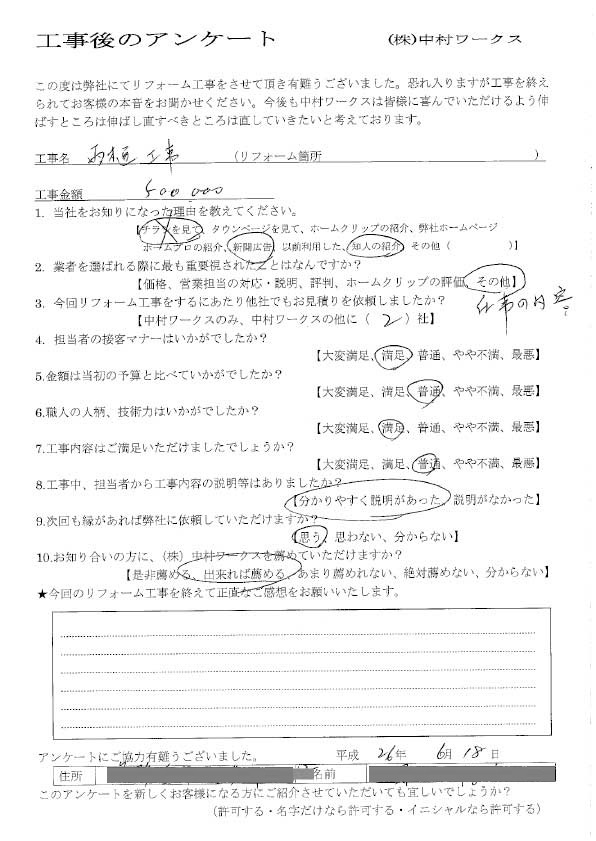 工事後のアンケート (株)中村ワークス
この度は弊社にてリフォーム工事をさせて頂き有難うございました。恐れ入りますが工事を終え
られてお客様の本音をお聞かせください。今後も中村ワークスは皆様に喜んでいただけるよう伸
ばすところは伸ばし直すべきところは直していきたいと考えております。
工事名 工事 (リフォーム箇所 )
工事金額 500,000
1. 当社をお知りになった理由を教えてください。
【チラシを見て、タウンページを見て、ホームクリップの紹介、弊社ホームページ
ホームプロの紹介、新聞広告、以前利用した、知人の紹介、その他( )】
2. 業者を選ばれる際に最も重要視されたことはなんですか?
【価格、営業担当の対応・説明、評判、ホームクリップの評価、その他】
仕事の内容?
3. 今回リフォーム工事をするにあたり他社でもお見積りを依頼しましたか?
【中村ワークスのみ、中村ワークスの他に( 2 )社】
4. 担当者の接客マナーはいかがでしたか?
【大変満足、満足、普通、やや不満、最悪】
5.金額は当初の予算と比べていかがでしたか?
【大変満足、満足、普通、やや不満、最悪】
6.職人の人柄、技術力はいかがでしたか?
【大変満足、満足、普通、やや不満、最悪】
7.工事内容はご満足いただけましたでしょうか?
【大変満足、満足、普通、やや不満、最悪】
8.工事中、担当者から工事内容の説明等はありましたか?
【分かりやすく説明があった、説明がなかった】
9.次回も縁があれば弊社に依頼していただけますか?
【思う、思わない、分からない】
10.お知り合いの方に、(株)中村ワークスを薦めていただけますか?
【是非薦める、出来れば薦める、あまり薦めれない、絶対薦めない、分からない】
★今回のリフォーム工事を終えて正直なご感想をお願いいたします。
アンケートにご協力有難うございました。 平成 26年 6月 18日
住所 名前
このアンケートを新しくお客様になる方にご紹介させていただいても宜しいでしょうか?
(許可する・名字だけなら許可する・イニシャルなら許可する)